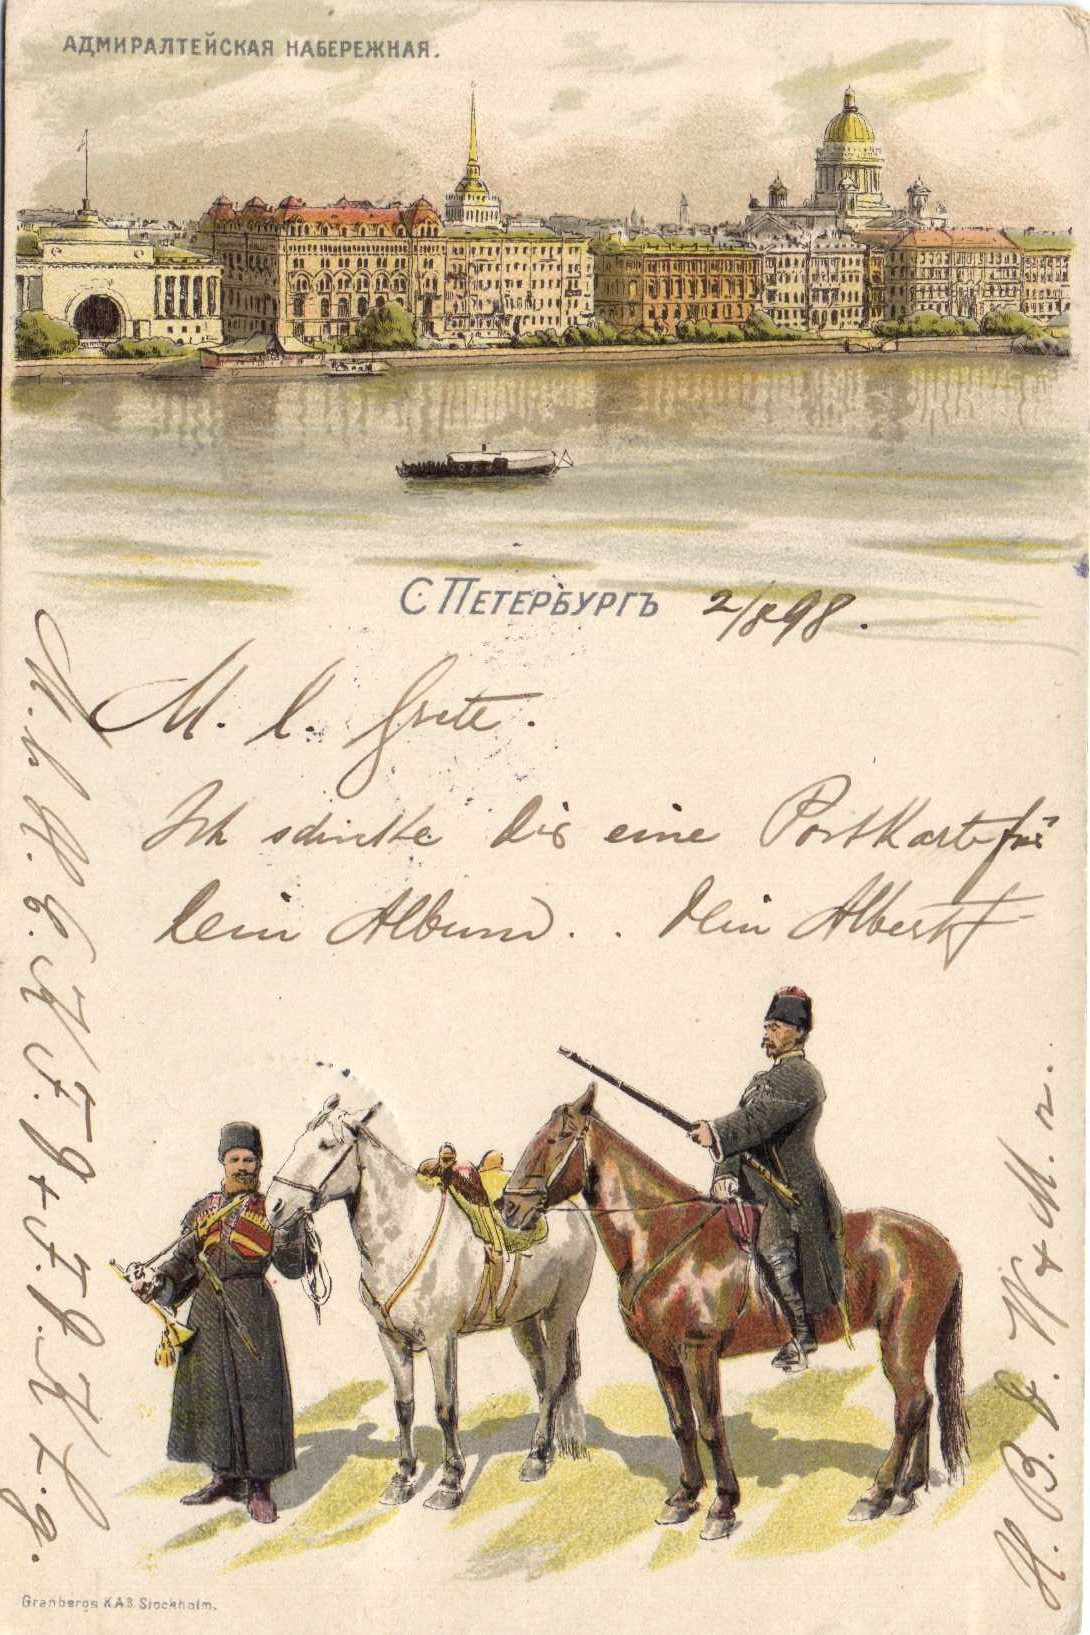 АДМИРАЛТЕЙСКАЯ НАБЕРЕЖНАЯ.
С ПЕТЕРБУРГЪ 2/8 98.
M. l. Grete.
Ich schicke Dir eine Postkarte für
Dein Album. . Dein Albert
H. B. d. W + M. n.
Granbergs K.A.B. Stockholm.